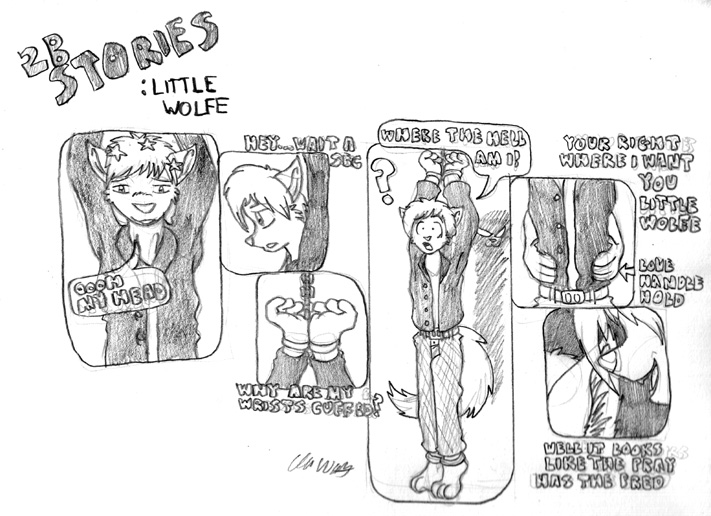 2B
STORIES
:LITTLE
WOLFE
OOOH
MY HEAD
HEY...WAIT A
SEC
WHY ARE MY
WRISTS CUFFED?
WHERE THE HELL
AM I!
?
YOUR RIGHT
WHERE I WANT
YOU
LITTLE
WOLFE
LOVE
HANDLE
HOLD
WELL IT LOOKS
LIKE THE PRAY
HAS THE PRED